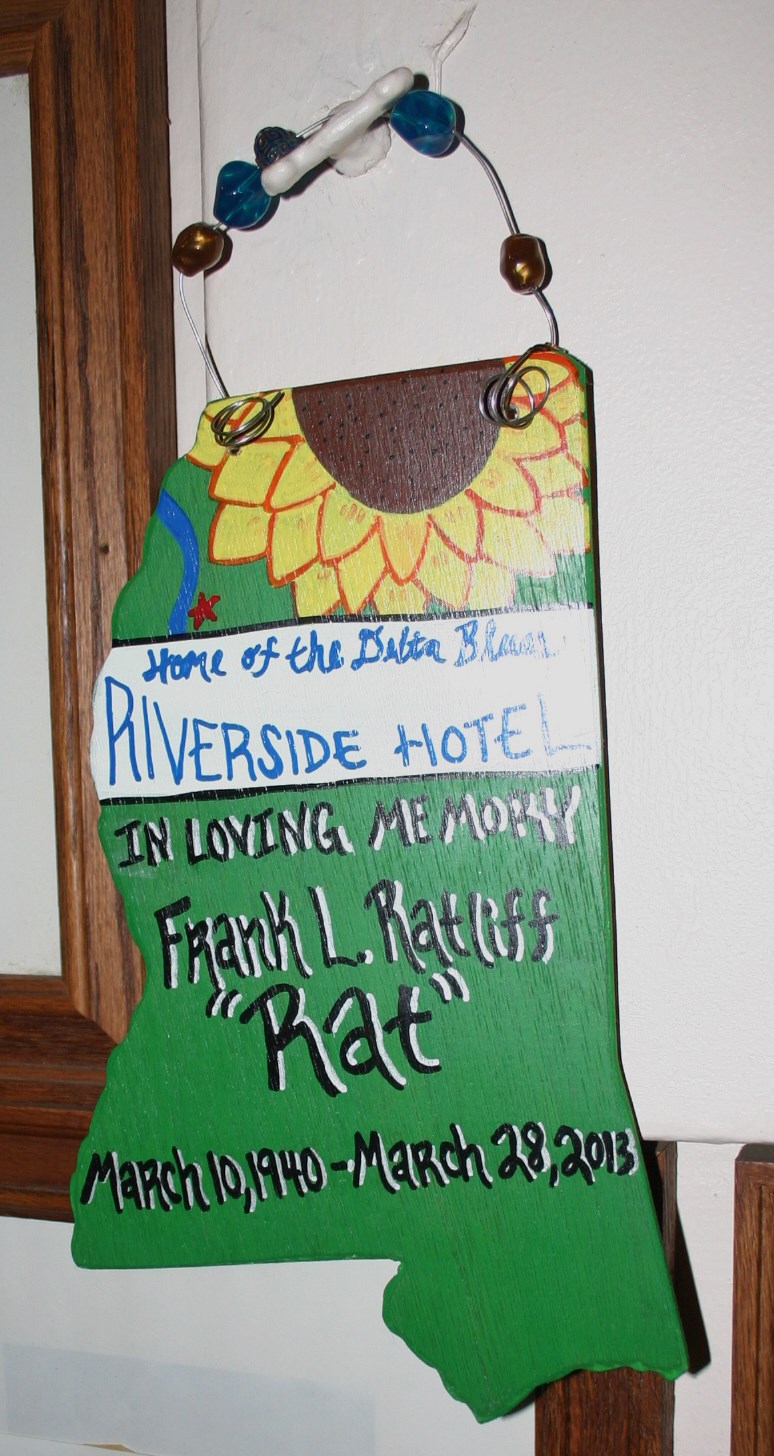 Home of the Delta Blues
RIVERSIDE HOTEL
IN LOVING MEMORY
Frank L. Ratliff
"Rat"
March 10, 1940 - March 28, 2013